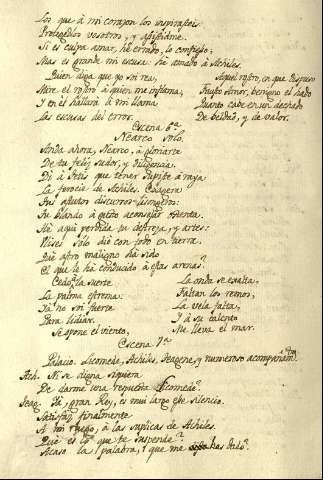 Los que à mi corazon los inspirasteis
Protegedlos vosotros, y assistidme.
Si es culpa amar, he errado, lo confieso;
Mas es grande mi escusa: he amado à Achiles.
Quien diga que yo soi rea,
Mire el rostro à quien me inflama,
Y en èl hallarà à mi llama
Las escusas del error.
Aquel rostro, en que dispuso
Justo Amor, benigno el hado
Quanto cabe en un dechado
De beldad, y de valor.
Escena 6ª
Nearco solo.
Anda ahora, Nearco, à gloriarte
De tu feliz sudor, y diligencia.
Di à Tetis que tener supiste à raya
La ferocia de Achiles.
Tus astutos discursos lisongeros:
Tu blando à gusto aconsejar
He aqui perdida tu destreza, y artes:
Ulises solo diò con todo en tierra.
Què astro maligno ha sido
El que le ha conducido à estas arenas?
Cedo, la suerte
La palma
Ya no soi fuerte
Para lidiar.
Se opone el viento,
La onda se exalta,
Faltan los remos,
La vela falta,
Y à su talento
Me lleva el mar.
Escena 7ª
Palacio. Licomedes, Achiles, Teagene, y numeroso acompañamto
Ach. Ni se digna siquiera
De darme una respuesta Licomedes?
Teag. Ya, gran Rey, es mui largo ese silencio.
Satisfaz finalmente
A mi ruego, à las suplicas de Achiles.
Què es lo que te suspende?
Acaso la palabra, que me has dado?